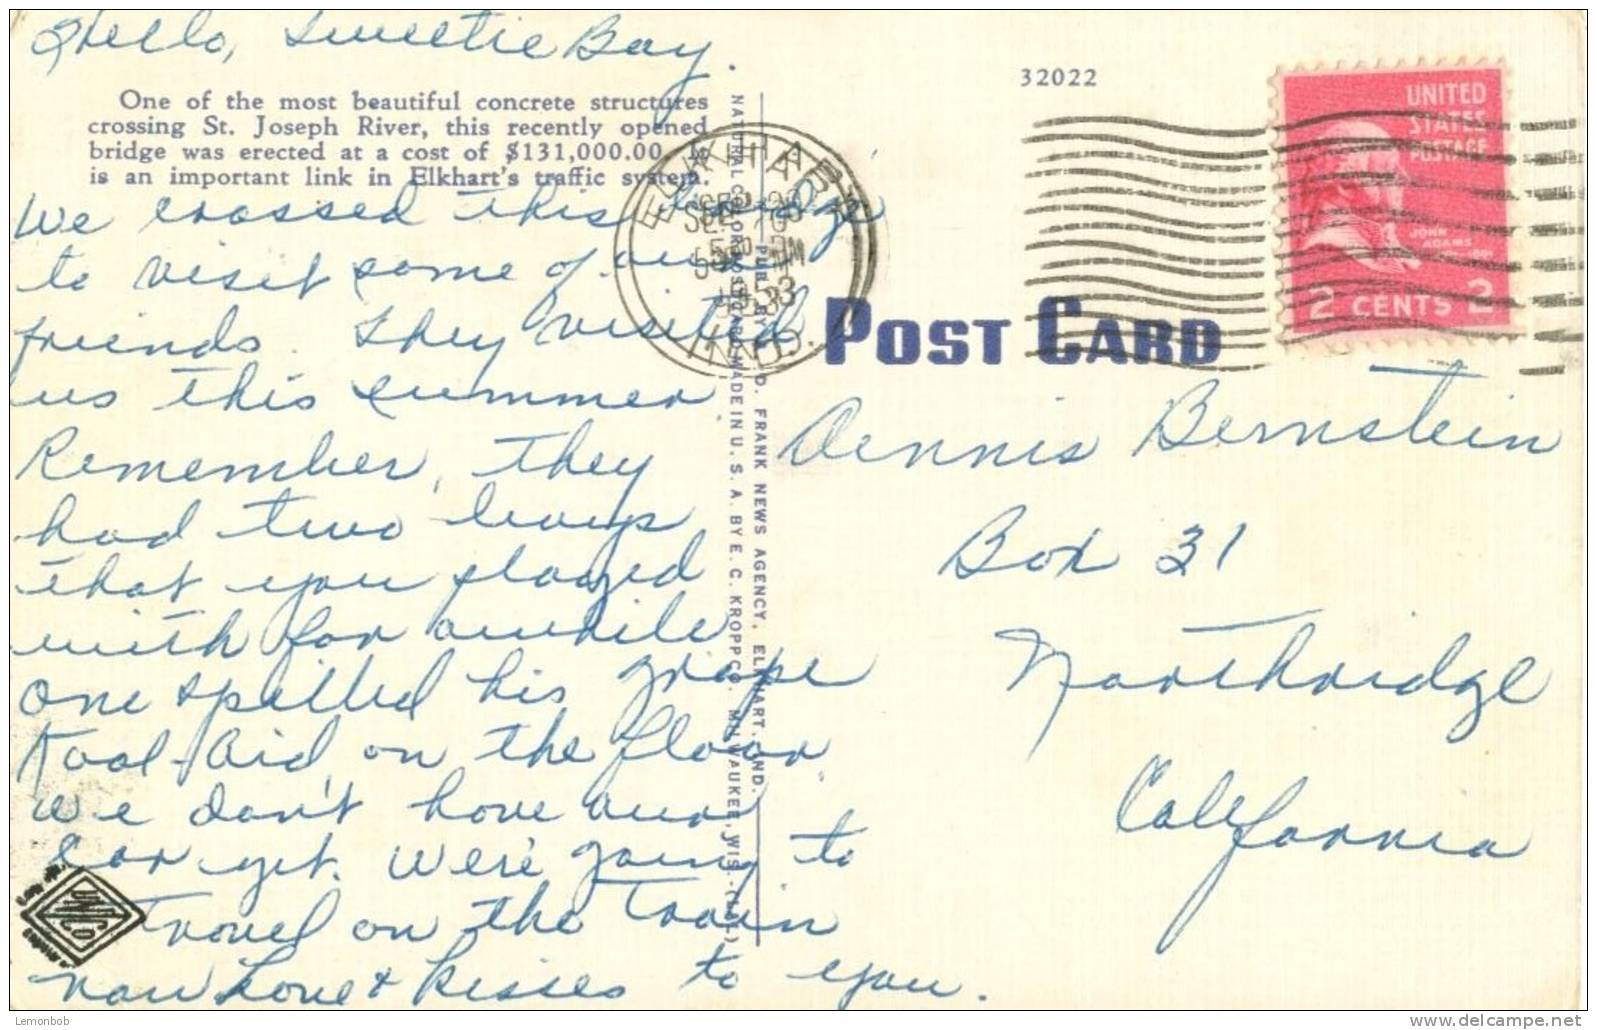 Hello, Sweetie Boy.
One of the most beautiful concrete structures
crossing St. Joseph River, this recently opened
bridge was erected at a cost of $131,000.00. It
is an important link in Elkhart's traffic system.
We crossed this bridge
to visit some of our
friends. They visited
us this summer
Remember, they
had two boys
that you played
with for awhile
One spilled his grape
Kool-Aid on the floor
We don't have our
car yet. We're going to
travel on the train
now Love & kisses to you.
NATURAL COLOR POST CARD MADE IN U. S. A. BY E. C. KROPP CO. MILWAUKEE, WIS.
PUBL. BY O. FRANK NEWS AGENCY, ELKHART, IND.
32022
ELKHART
SEP
5 PM
1953
IND.
UNITED
STATES
POSTAGE
JOHN
ADAMS
2 CENTS 2
POST CARD
Dennis Bernstein
Box 31
Northridge
California
Lemonbob
delcampe.net